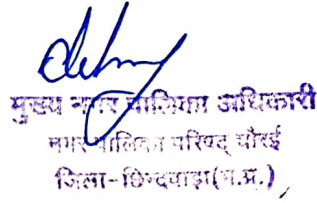 मुख्य नगर पालिका अधिकारी
नगर पालिका परिषद् चौरई
जिला-छिन्दवाड़ा(म.प्र.)